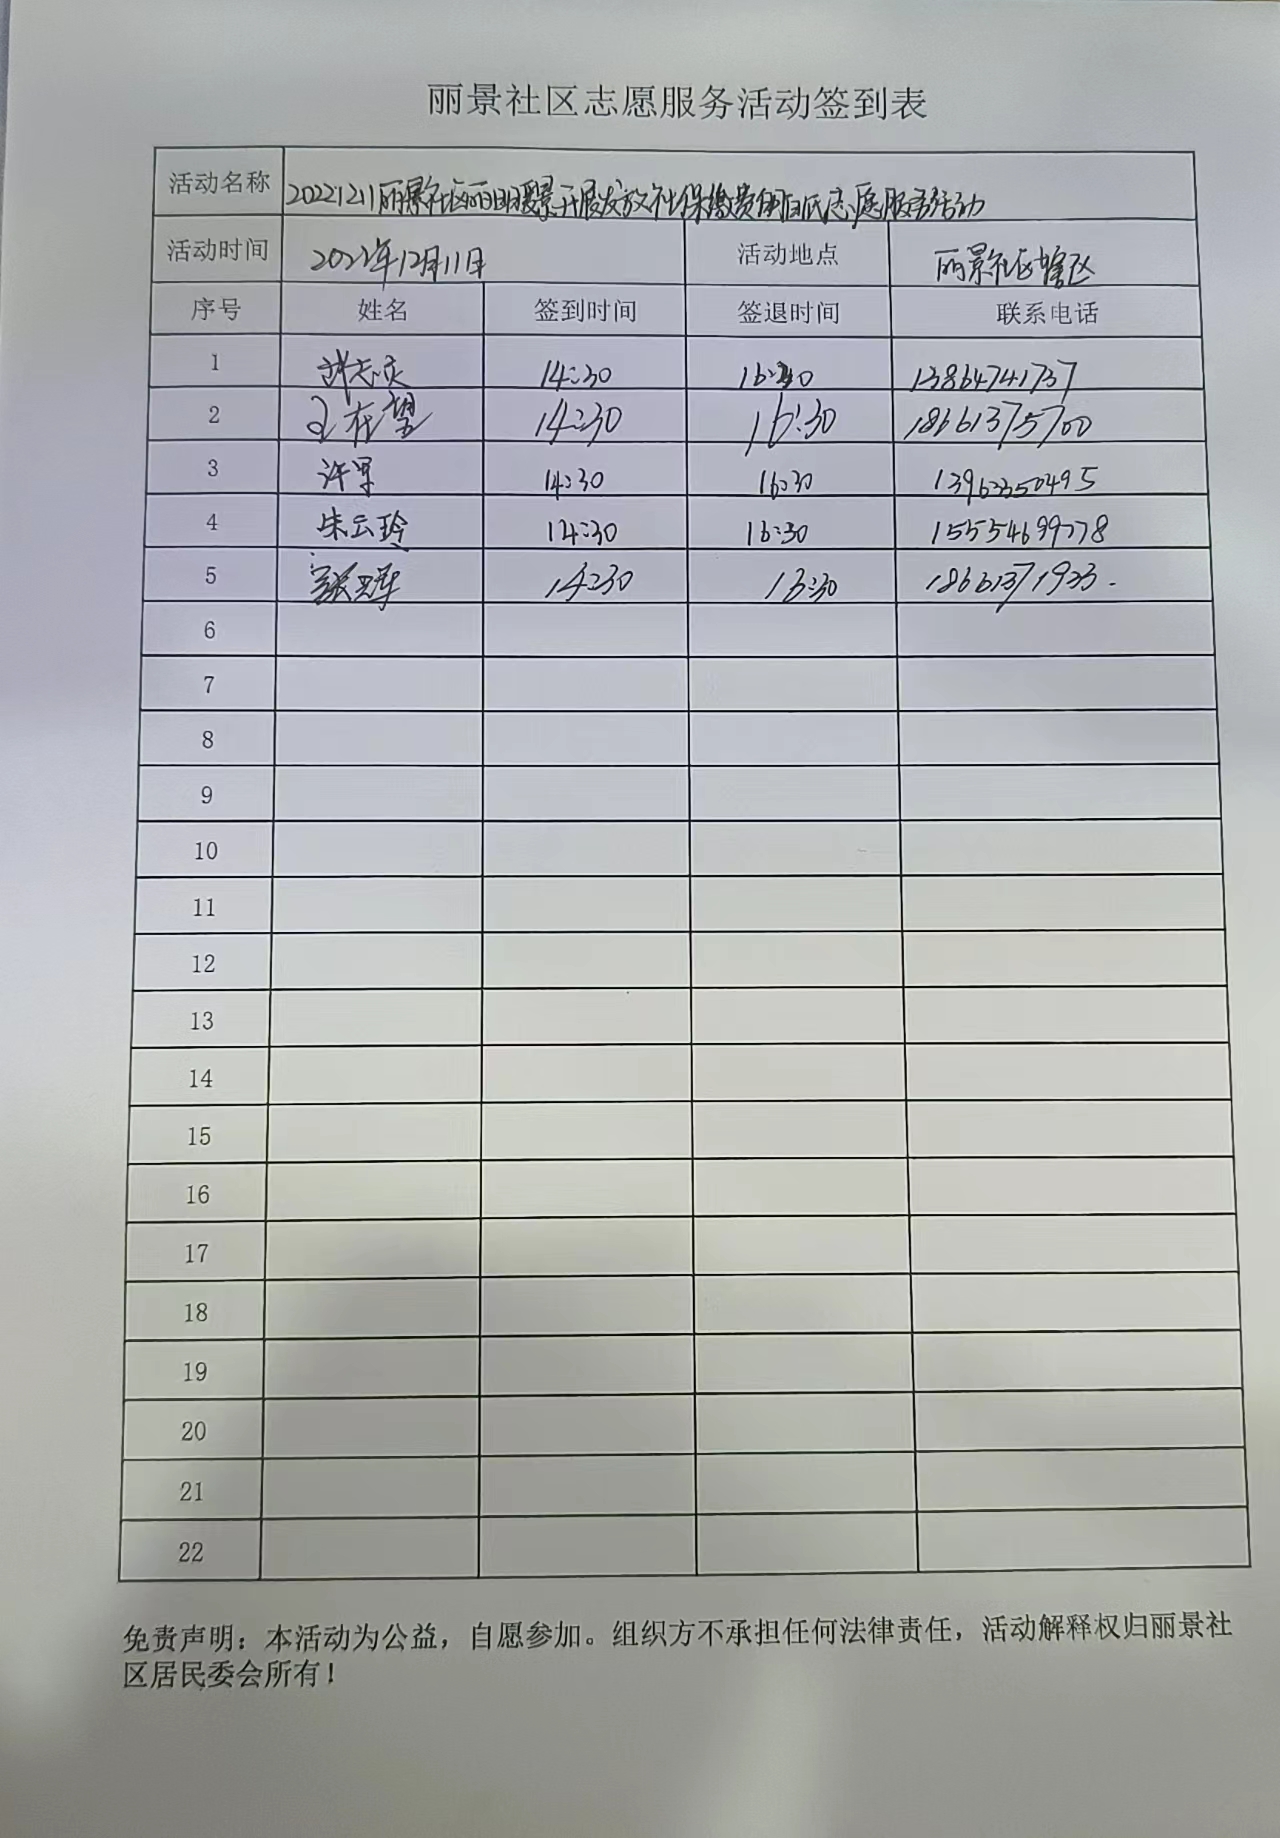 丽景社区志愿服务活动签到表
活动名称 20221211丽景社区丽日暖景开展发放社保缴费明白纸志愿服务活动
活动时间 2022年12月11日 活动地点 丽景社区辖区
序号 姓名 签到时间 签退时间 联系电话
1 志庆 14:30 16:30 13864741737
2 王在望 14:30 16:30 18661375700
3 许军 14:30 16:30
4 朱云玲 14:30 16:30 15554699778
5 14:30 16:30 18661371923.
6
7
8
9
10
11
12
13
14
15
16
17
18
19
20
21
22
免责声明：本活动为公益，自愿参加。组织方不承担任何法律责任，活动解释权归丽景社
区居民委会所有！